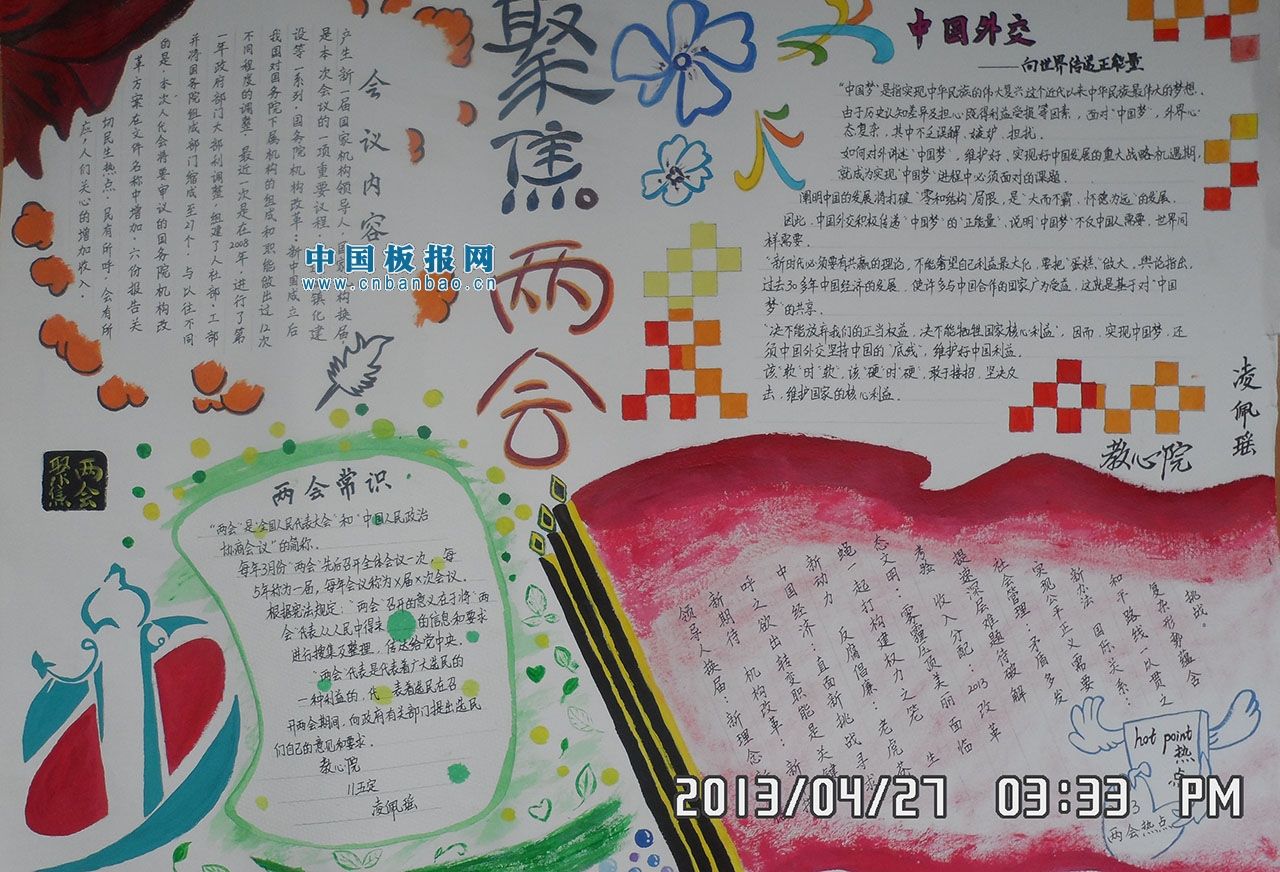 聚焦
两会
会议内容
产生新一届国家机构领导人，国家机构换届，
是本次会议的一项重要议程。
设等一系列，国务院机构改革：新中国成立后
我国对国务院下属机构的组成和职能做出过12次
不同程度的调整，最近一次是在2008年，进行了第
一年政府部门大部制调整，组建了人社部，工部
并将国务院组成部门缩成至27个，与以往不同
的是，本次人代会将要审议的国务院机构改
革方案在文件名称中增加，六份报告关
切民生热点：民有所呼，会有所
应，人们关心的增加收入。
中国板报网
www.cnbanbao.cn
中国外交
——向世界传递正能量
“中国梦”是指实现中华民族的伟大复兴这个近代以来中华民族最伟大的梦想。
由于历史认知差异及担心既得利益受损等因素，面对“中国梦”，外界心
态复杂，其中不乏误解，嫉妒，担扰。
如何对外讲述“中国梦”，维护好、实现好中国发展的重大战略机遇期，
就成为实现“中国梦”进程中必须面对的课题。
阐明中国的发展将打破“零和结构”局限，是“大而不霸，怀德为远”的发展。
因此，中国外交积极传递“中国梦”的“正能量”，说明“中国梦”不仅中国人需要，世界同
样需要。
“新时代必须要有共赢的理论，不能奢望自己利益最大化，要把“蛋糕”做大。舆论指出，
过去30多年中国经济的发展，使许多与中国合作的国家广为受益，这就是基于对“中国
梦”的共享。
“决不能放弃我们的正当权益，决不能牺牲国家核心利益”，因而，实现中国梦，还
须中国外交坚持中国的“底线”，维护好中国利益。
该“软”时“软”，该“硬”时“硬”，敢于接招，坚决攵
击，维护国家的核心利益。
教心院
凌佩瑶
两会
聚焦
两会常识
“两会”是“全国人民代表大会”和“中国人民政治
协商会议”的简称。
每年3月份“两会”先后召开全体会议一次，每
5年称为一届，每年会议称为X届X次会议。
根据宪法规定：“两会”召开的意义在于将“两
会”代表从人民中得来的信息和要求
进行搜集及整理，传达给党中央。
“两会”代表是代表着广大选民的
一种利益的，代表着选民在召
开两会期间，向政府有关部门提出选民
们自己的意见和要求。
教心院
凌佩瑶
挑战。
复杂形势蕴含
和平路线一以贯之
新办法 国际关系：
实现公平正义需要
社会管理：矛盾多发
提速深层难题待破解
考验 收入分配：2013改革
态文明：雾霾压顶美丽面临
绳一起打构建权力之笼 生
新动力 反腐倡廉：老虎苍
中国经济：直面新挑战寻求
呼之欲出转变职能是关键
新期待 机构改革：新
领导人换届：新理念
hot point
热点
两会热点
2013/04/27 03:33 PM